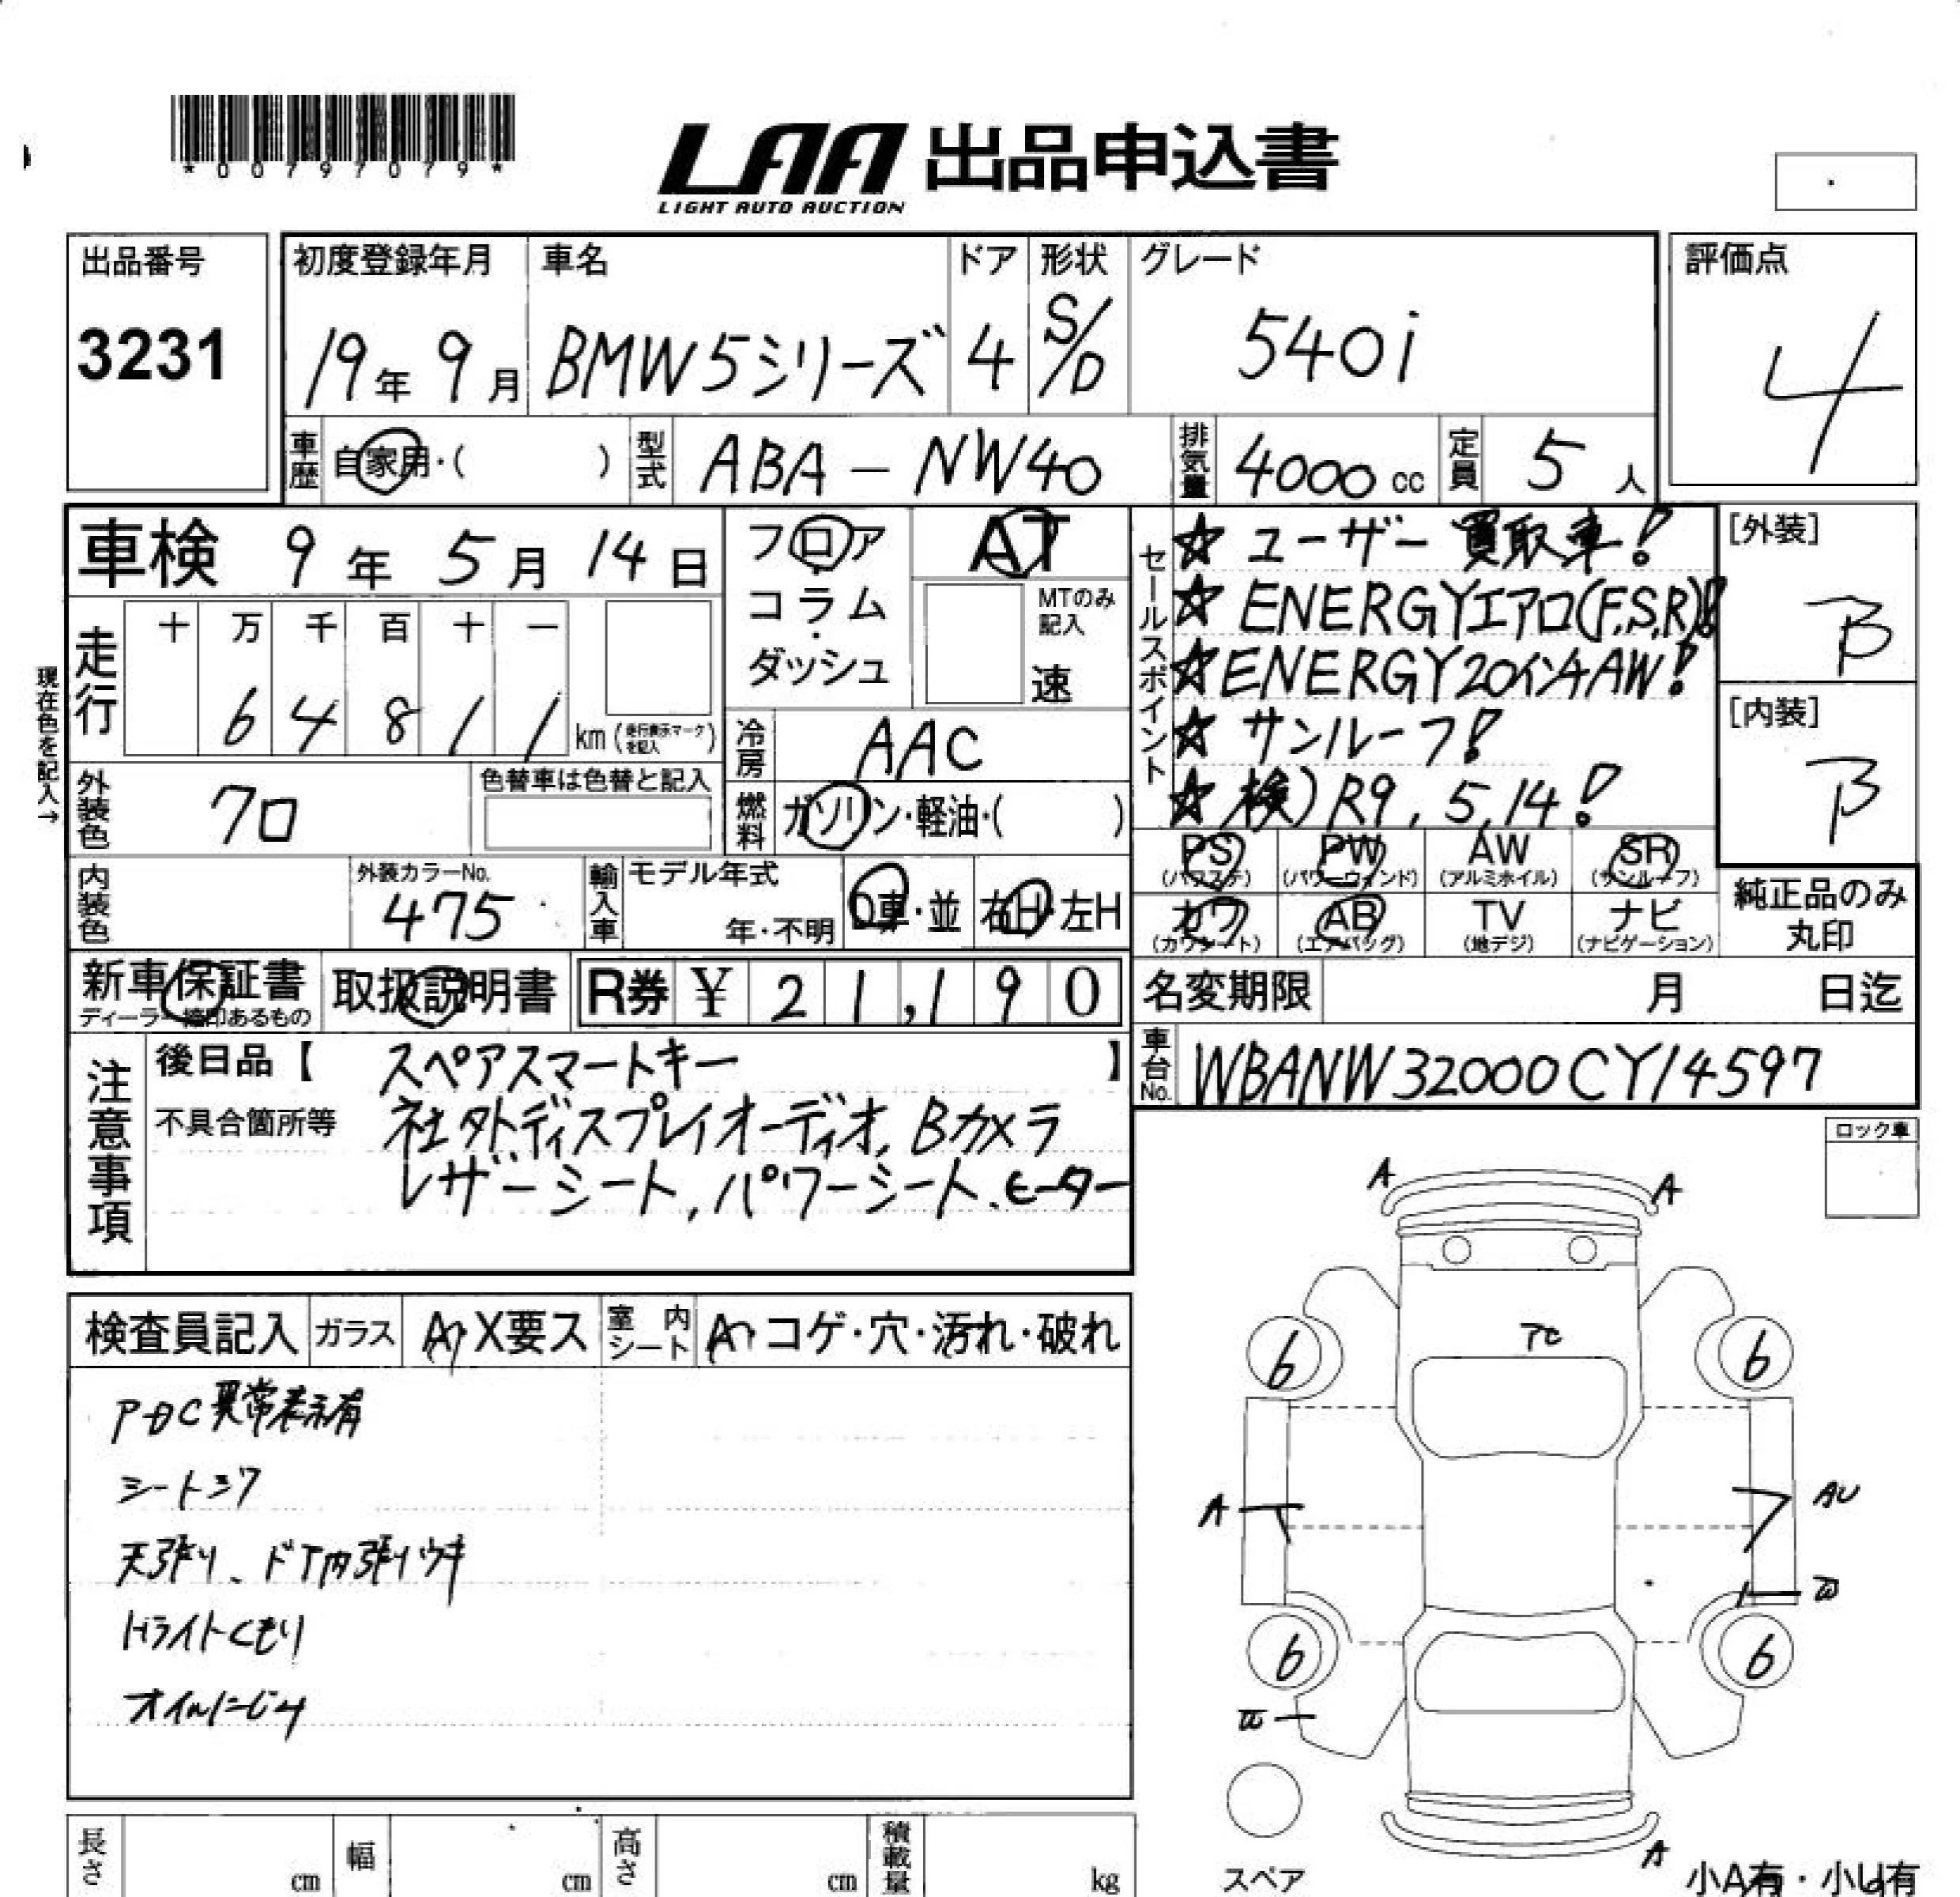 *00797079*
LAA 出品申込書
LIGHT AUTO AUCTION
出品番号
3231
初度登録年月
19年 9月
車名
BMW5シリーズ
ドア
4
形状
S/D
グレード
540i
評価点
4
車歴 自家用・( )
型式 ABA-NW40
排気量 4000 cc
定員 5 人
車検 9年 5月 14日
フロア・コラム・ダッシュ
AT
MTのみ記入
速
セールスポイント
☆ ユーザー買取車!
☆ ENERGYエアロ(F,S,R)!
☆ ENERGY20インチAW!
☆ サンルーフ!
☆ 検)R9,5,14!
[外装]
B
[内装]
B
現在色を記入→
走行
十 万 千 百 十 一
6 4 8 1 1 km(走行表示マークを記入)
冷房 AAC
燃料 ガソリン・軽油・( )
外装色 クロ
色替車は色替と記入
内装色
外装カラーNo.
475
輸入車
モデル年式
年・不明
D車・並
右H・左H
PS PW AW SR
(パワステ) (パワーウィンド) (アルミホイル) (サンルーフ)
カワ AB TV ナビ
(カワシート) (エアバッグ) (地デジ) (ナビゲーション)
純正品のみ
丸印
新車保証書
ディーラー捺印あるもの
取扱説明書
R券 ¥ 21,190
名変期限 月 日迄
車台No. WBANW32000CY14597
注意事項
後日品【 スペアスマートキー 】
不具合箇所等 社外ディスプレイオーディオ、Bカメラ
レザーシート,パワーシート、ヒーター
ロック車
検査員記入
ガラス A・X要ス
室内シート A・コゲ・穴・汚れ・破れ
PDC異常表示有
シートシワ
天張り、ドア内張りウキ
Hライトくもり
オイルにじみ
A A
6 6
A AU
6 6
A
スペア
小A有・小U有
長さ cm
幅 cm
高さ cm
積載量 kg